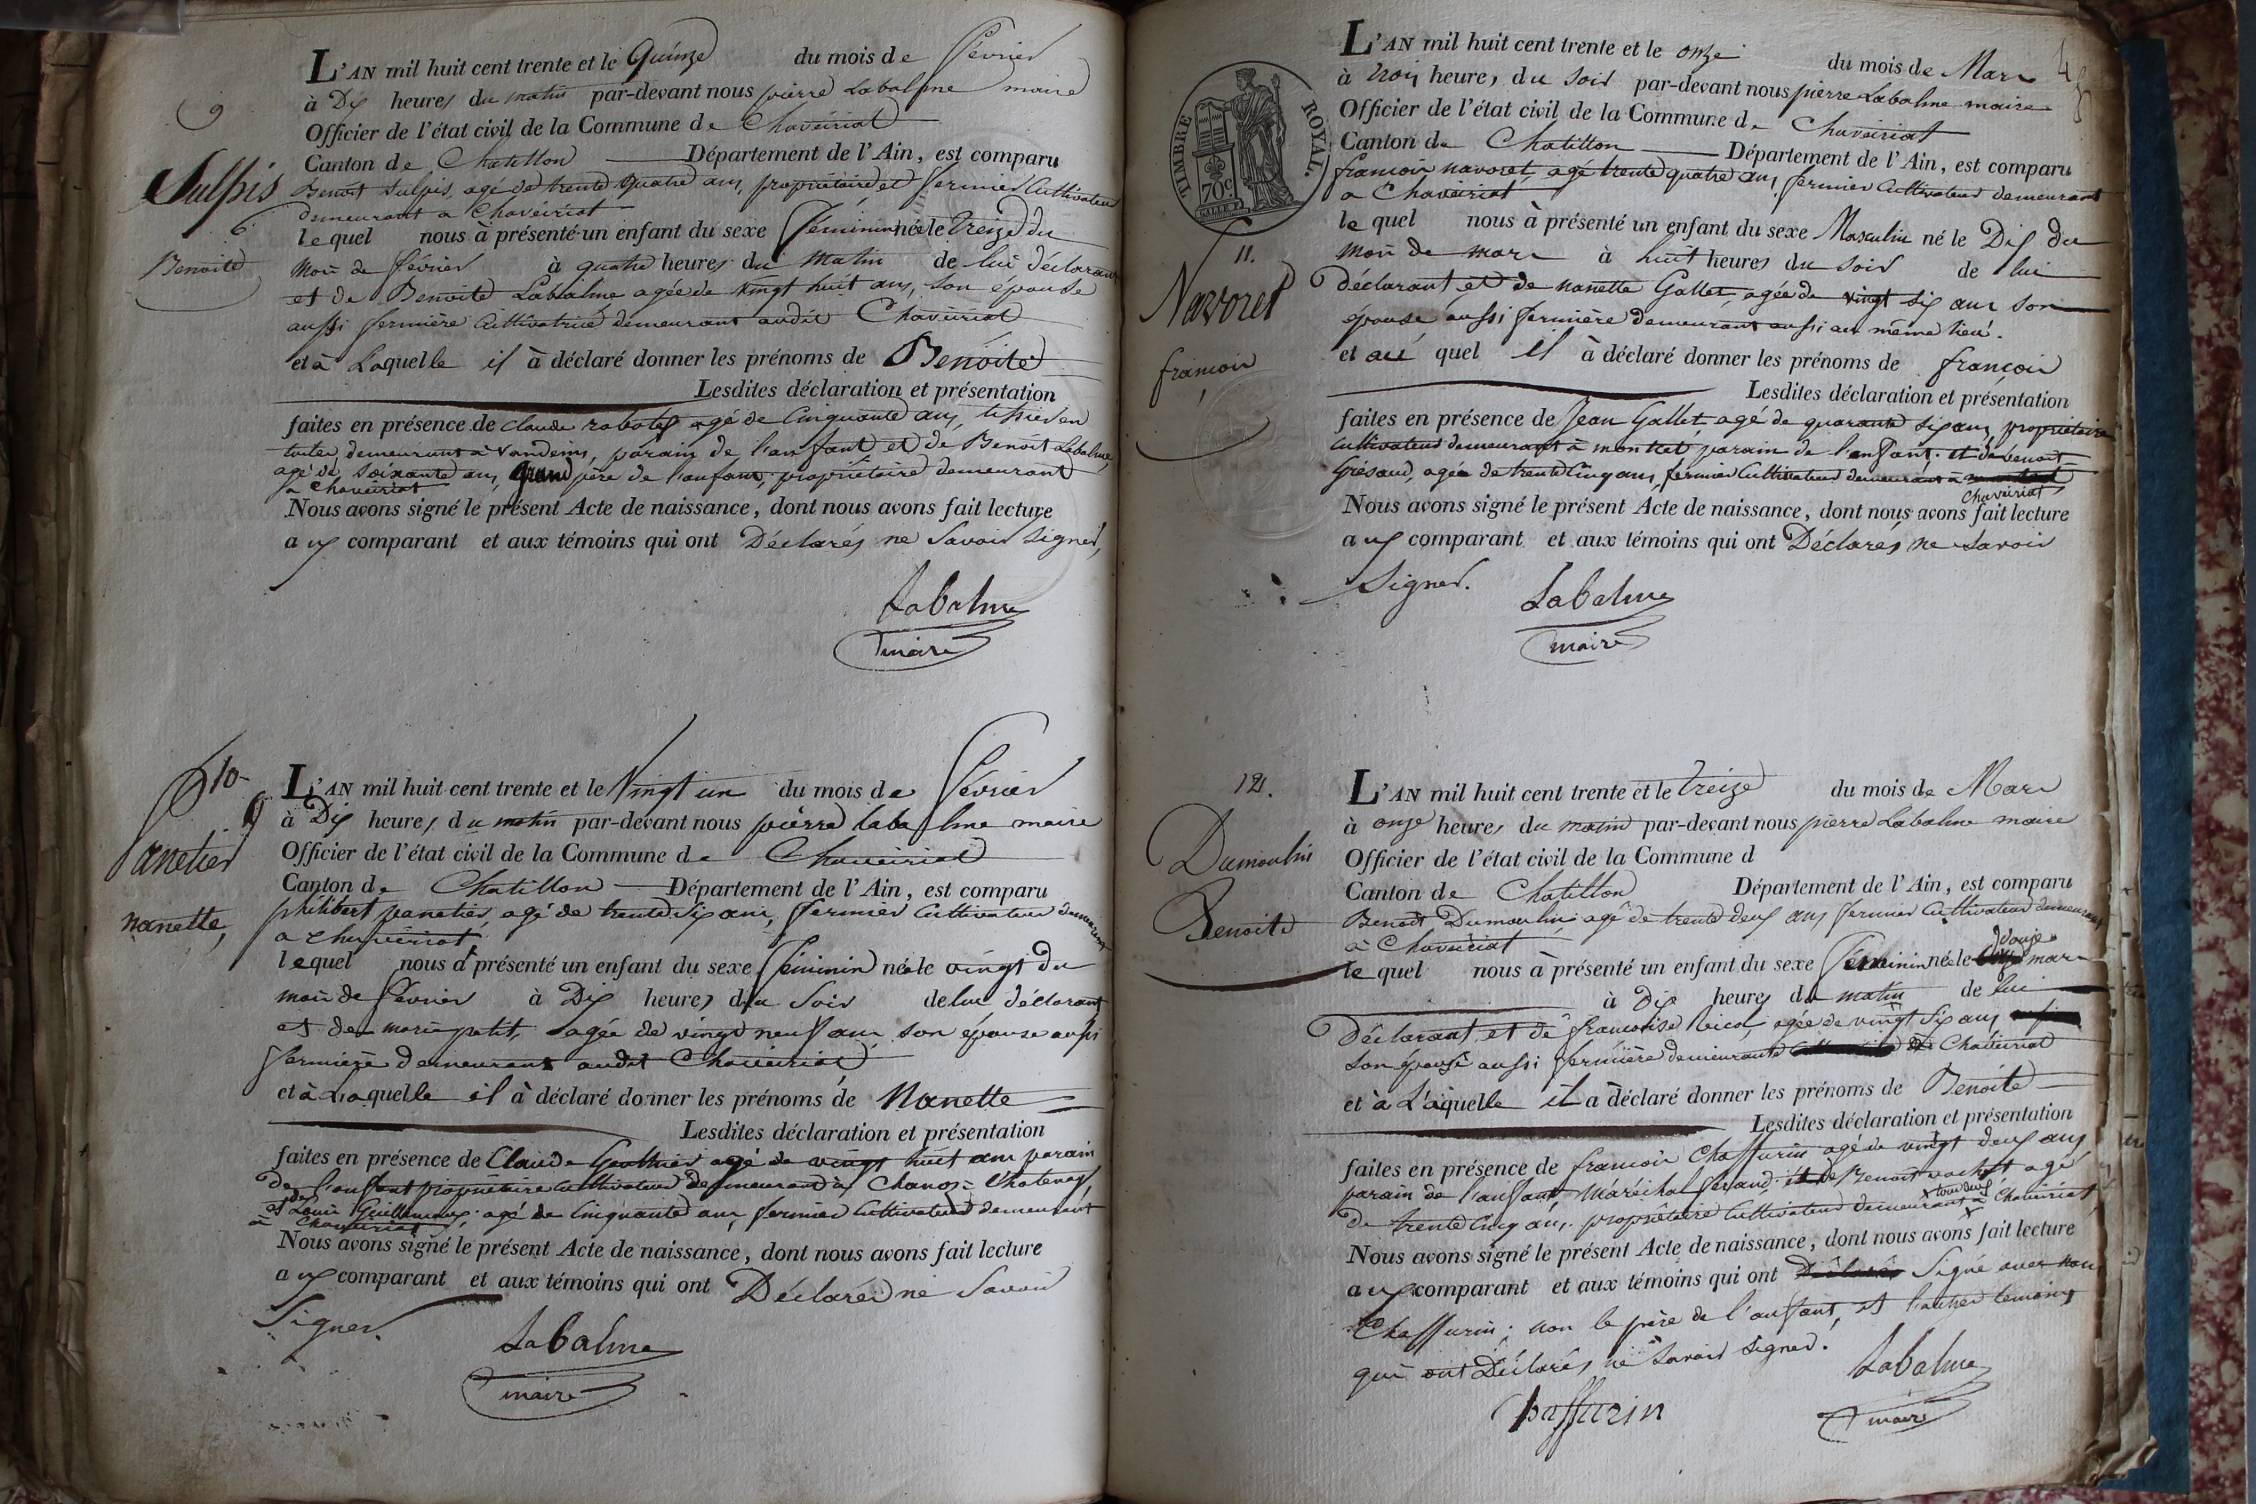 9
Sulpis
6
Benoite
L'AN mil huit cent trente et le Quinze du mois de février
à Dix heures du matin par-devant nous pierre Labalme maire
Officier de l'état civil de la Commune de Chaveiriat
Canton de Chatillon Département de l'Ain, est comparu
Benoit Sulpis, agé de trente quatre ans, propriétaire et fermier Cultivateur
demeurant a Chaveiriat
lequel nous à présenté un enfant du sexe féminin née le treize du
mois de février à quatre heures du matin de lui déclarant
et de Benoite Labalme agée de vingt huit ans, son épouse
aussi fermière Cultivatrice demeurant audit Chaveiriat
et à Laquelle il à déclaré donner les prénoms de Benoite
Lesdites déclaration et présentation
faites en présence de Claude agé de Cinquante ans, tissier en
toile, demeurant à Vandeins, parain de l'anfant et de Benoit Labalme,
agé de soixante ans, grand père de l'anfant, propriétaire demeurant
a Chaveiriat
Nous avons signé le présent Acte de naissance, dont nous avons fait lecture
aux comparant et aux témoins qui ont Déclarés ne Savoir Signer,
Labalme
maire
10
panetier
nanette,
L'AN mil huit cent trente et le Vingt un du mois de février
à Dix heures du matin par-devant nous pierre Labalme maire
Officier de l'état civil de la Commune de Chaveiriat
Canton de Chatillon Département de l'Ain, est comparu
philibert panetier, agé de trente six ans, fermier Cultivateur demeurant
a chaveiriat
lequel nous à présenté un enfant du sexe féminin née le vingt du
mois de février à Dix heures du Soir de lui déclarant
et de marie petit, agée de vingt neuf ans son épouse aussi
fermière demeurant audit Chaveiriat
et à Laquelle il à déclaré donner les prénoms de Nanette
Lesdites déclaration et présentation
faites en présence de Claude Gauthier agé de vingt huit ans parain
de l'anfant propriétaire cultivateur demeurant à Chanoz-Chatenay,
et de Louis Guillemaux agé de Cinquante ans fermier Cultivateur demeurant
à Chaveiriat
Nous avons signé le présent Acte de naissance, dont nous avons fait lecture
aux comparant et aux témoins qui ont Déclarés ne Savoir
Signer.
Labalme
maire
TIMBRE ROYAL.
70c
11.
Navoret
françois
L'AN mil huit cent trente et le onze du mois de Mars
à trois heures du soir par-devant nous pierre Labalme maire
Officier de l'état civil de la Commune de Chaveiriat
Canton de Chatillon Département de l'Ain, est comparu
françois navoret, agé trente quatre ans, fermier Cultivateur demeurant
a Chaveiriat
lequel nous à présenté un enfant du sexe Masculin né le Dix du
mois de mars à huit heures du soir de lui
déclarant et de nanette Gallet, agée de vingt six ans son
épouse aussi fermière demeurant aussi au même lieu.
et au quel il à déclaré donner les prénoms de françois
Lesdites déclaration et présentation
faites en présence de Jean Gallet agé de quarante six ans propriétaire
cultivateur demeurant à montcet parain de l'anfant. et de benoit
grésaud, agée de trente Cinq ans, fermier Cultivateur demeurant à
Chaveiriat
Nous avons signé le présent Acte de naissance, dont nous avons fait lecture
aux comparant et aux témoins qui ont Déclarés ne Savoir
Signer.
Labalme
maire
12.
Dumoulin
Benoite
L'AN mil huit cent trente et le treize du mois de Mars
à onze heures du matin par-devant nous pierre Labalme maire
Officier de l'état civil de la Commune d
Canton de Chatillon Département de l'Ain, est comparu
Benoit Dumoulin agé de trente deux ans fermier Cultivateur demeurant
à Chaveiriat
lequel nous à présenté un enfant du sexe féminin née le douze mars
à Dix heures du matin de lui
Déclarant et de francoise agée de vingt six ans
son épouse aussi fermière demeurante Chaveiriat
et à Laquelle il à déclaré donner les prénoms de Benoite
Lesdites déclaration et présentation
faites en présence de françois Chaffurin agé de vingt deux ans
parain de l'anfant, Maréchal férand. et de Benoit agé
de trente Cinq ans. propriétaire Cultivateur demeurant x tous deux à Chaveiriat
Nous avons signé le présent Acte de naissance, dont nous avons fait lecture
aux comparant et aux témoins qui ont Déclarés Signé avec nous
Chaffurin; non le père de l'anfant, et l'autre témoins
qui ont Déclarés ne Savoir Signer.
Labalme
maire
Chaffurin